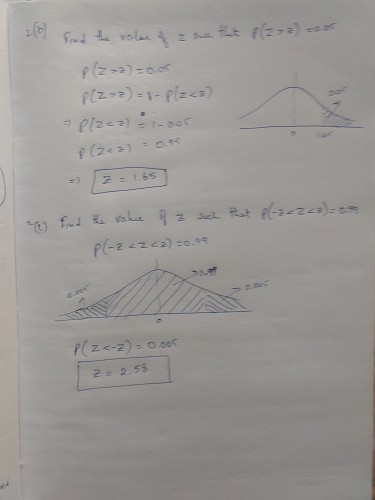 2(b) Find the value of z such that P(Z>z)=0.05
P(Z>z)=0.05
P(Z>z)=1-P(Z<z)
⇒ P(Z<z) = 1-0.05
P(Z<z) = 0.95
⇒ Z = 1.65
0.05
0 1.65
2(c) Find the value of z such that P(-z<Z<z)=0.99
P(-z<Z<z)=0.99
0.005 0.99 0.005
0
P(Z<-z)=0.005
Z = 2.58